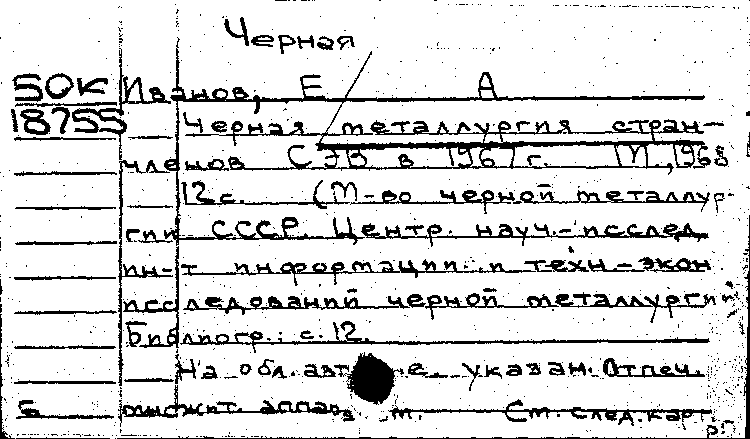 Черная
50К Иванов, Е А
18755 Черная металлургия стран-
членов СЭВ в 1967 г. М, 1968
12 с. (М-во черной металлур-
гии СССР. Центр. науч.-исслед.
ин-т информации и техн-экон
исследований черной металлургии
Библиогр.: с. 12.
На обл. авт не указан. Отпеч.
множит. аппара т. См. след. карт.